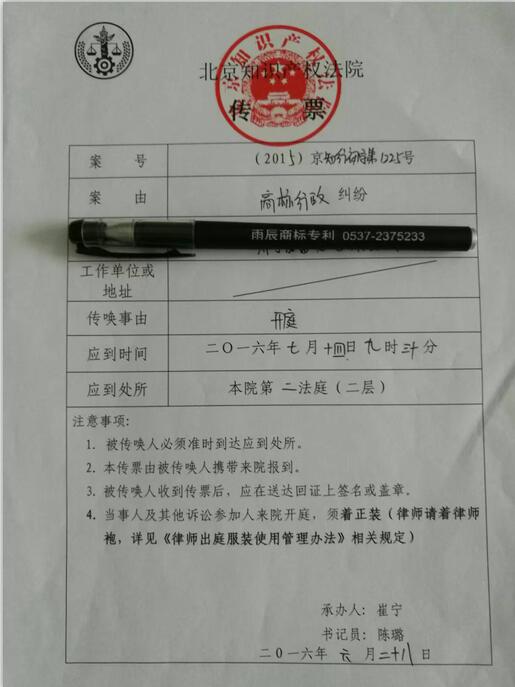 北京知识产权法院
传票
案 号 (2015)京知行初字第1225号
案 由 商标行政 纠纷
雨辰商标专利 0537-2375233
工作单位或
地址
传唤事由 开庭
应到时间 二〇一六年七月十四日九时三十分
应到处所 本院第二法庭(二层)
注意事项:
1. 被传唤人必须准时到达应到处所。
2. 本传票由被传唤人携带来院报到。
3. 被传唤人收到传票后,应在送达回证上签名或盖章。
4. 当事人及其他诉讼参加人来院开庭,须着正装(律师请着律师
袍,详见《律师出庭服装使用管理办法》相关规定)
承办人:崔宁
书记员:陈璐
二〇一六年六月二十八日